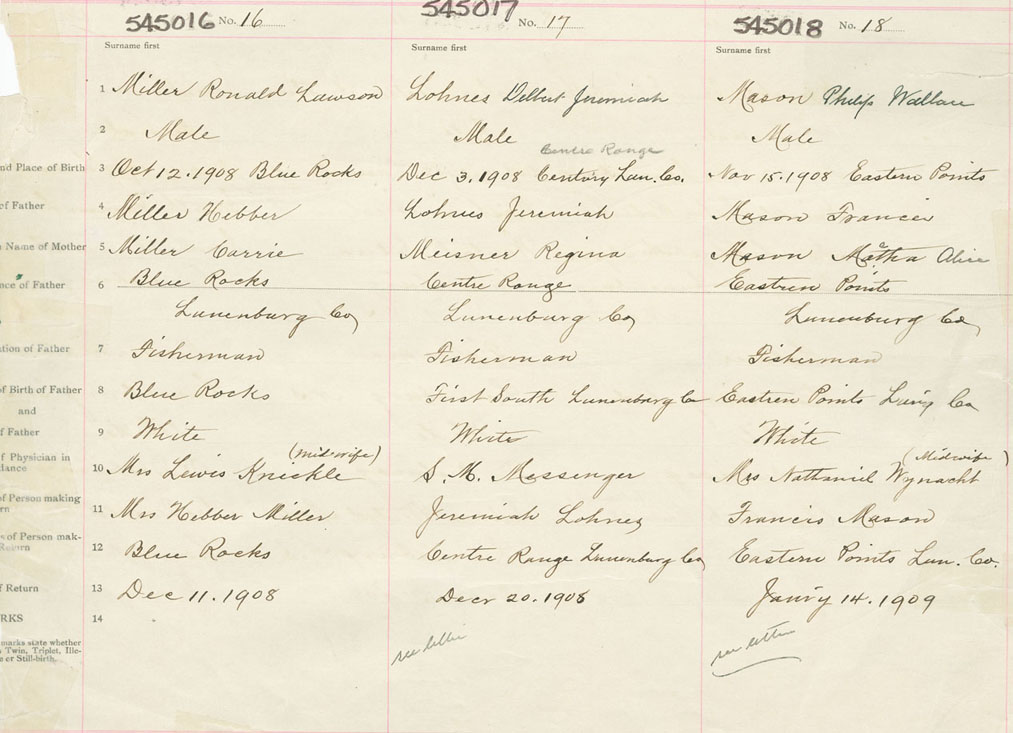 545016 No. 16 545017 No. 17 545018 No. 18
Surname first Surname first Surname first
1 Miller Ronald Lawson Lohnes Delbert Jeremiah Mason Philip Wallace
2 Male Male Male
Centre Range
nd Place of Birth 3 Oct 12. 1908 Blue Rocks Dec 3. 1908 Century Lun. Co. Nov 15. 1908 Eastern Points
of Father 4 Miller Hebber Lohnes Jeremiah Mason Francis
Name of Mother 5 Miller Carrie Meisner Regina Mason Matha Alice
nce of Father 6 Blue Rocks Centre Range Eastren Points
Lunenburg Co Lunenburg Co Lunenburg Co
ation of Father 7 Fisherman Fisherman Fisherman
of Birth of Father 8 Blue Rocks First South Lunenburg Co Eastren Points Co
and
f Father 9 White White White
(midwife) (Midwife)
f Physician in
dance 10 Mrs Lewis Knickle S. M. Messenger Mrs Nathaniel Wynacht
of Person making
rn 11 Mrs Hebber Miller Jeremiah Lohnes Francis Mason
s of Person mak-
Return 12 Blue Rocks Centre Range Lunenburg Co Eastern Points Lun. Co.
f Return 13 Dec 11. 1908 Decr 20. 1908 Janry 14. 1909
RKS 14
marks state whether
Twin, Triplet, Ille-
e or Still-birth.
see see